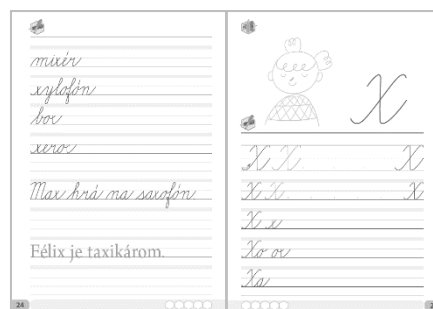 mixér
xylofón
box
xerox
Max hrá na saxofón.
Félix je taxikárom.
24
X
X X X
X X X
X x
Xo ox
Xa